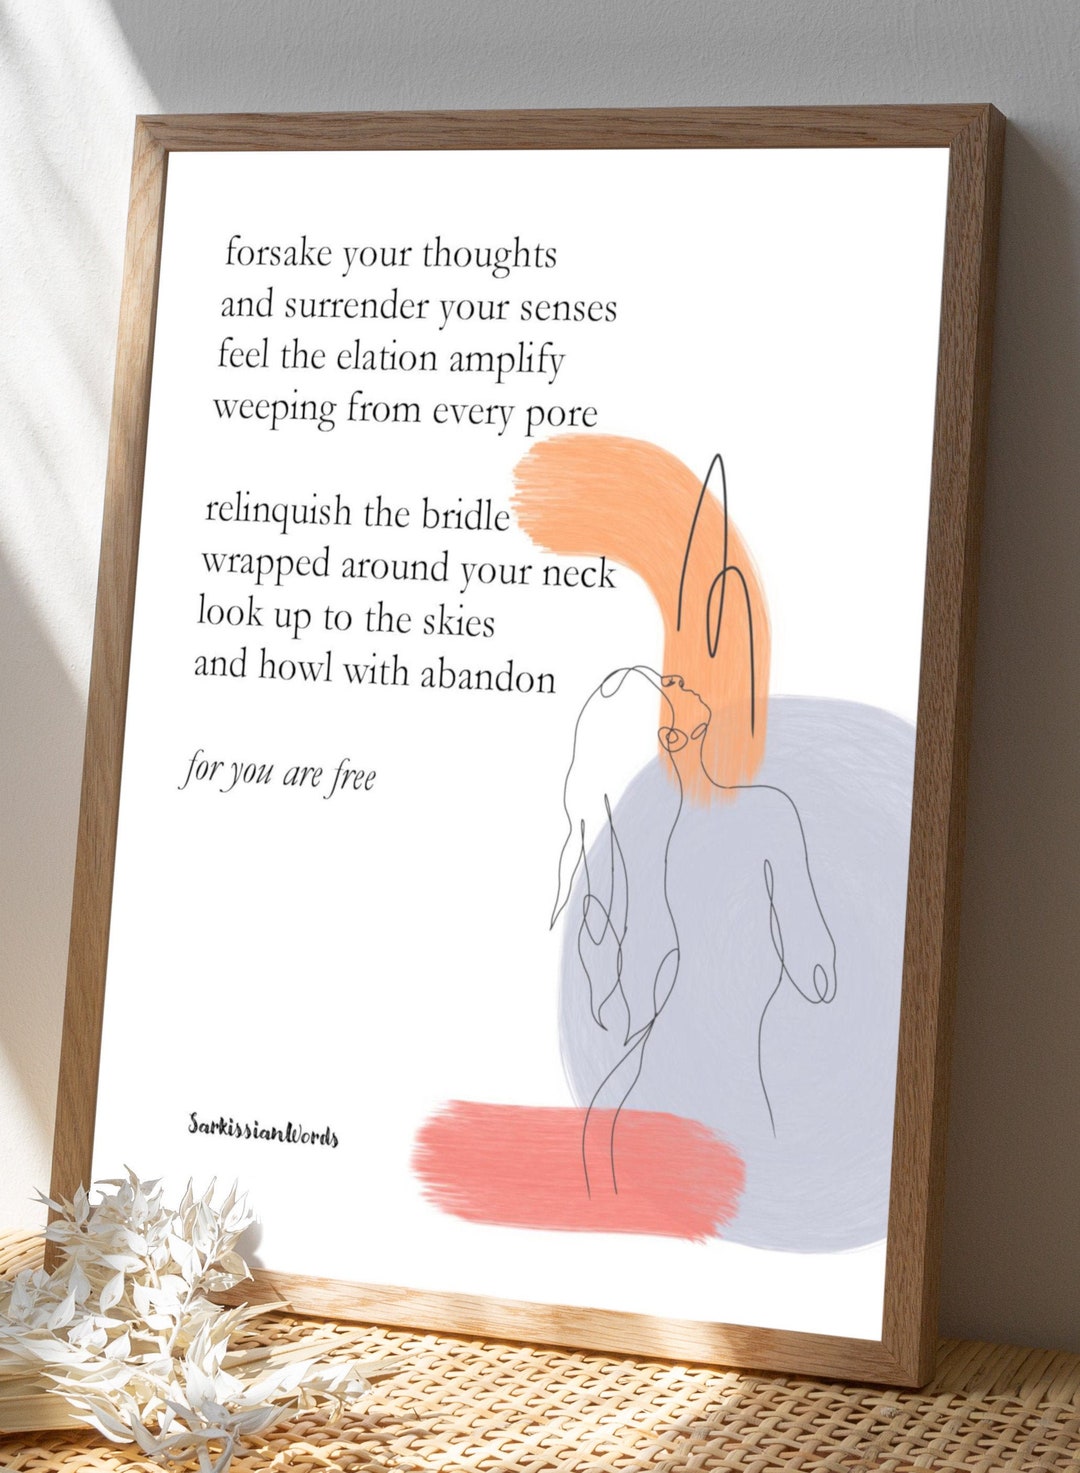 forsake your thoughts
and surrender your senses
feel the elation amplify
weeping from every pore
relinquish the bridle
wrapped around your neck
look up to the skies
and howl with abandon
for you are free
SarkissianWords